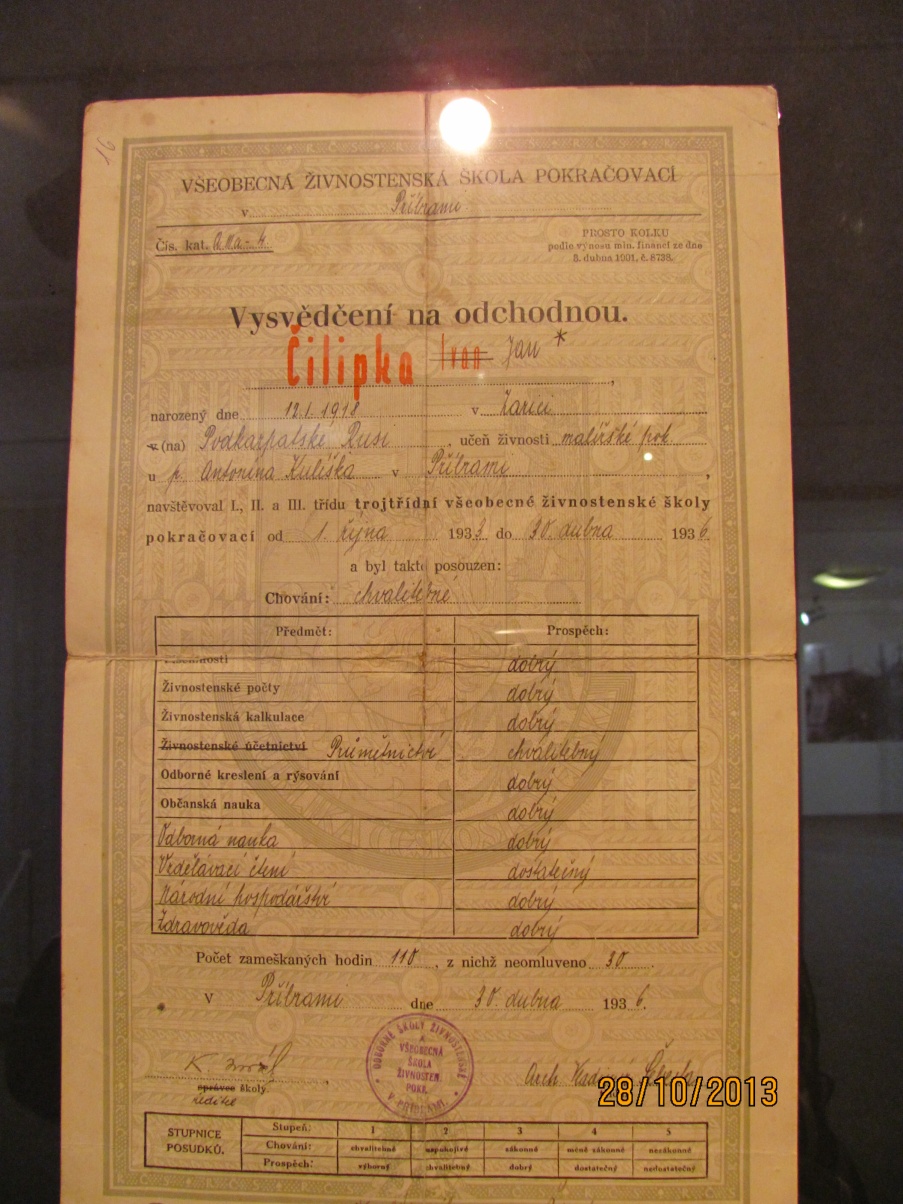 16
VŠEOBECNÁ ŽIVNOSTENSKÁ ŠKOLA POKRAČOVACÍ
v Příbrami
Čís. kat.
PROSTO KOLKU
podle výnosu min. financí ze dne
8. dubna 1901, č. 8738.
Vysvědčení na odchodnou.
Čilipka Ivan Jan *
narozený dne 12.1.1918 v Zariči
v (na) Podkarpatské Rusi, učeň živnosti malířské pok.
u p. Antonína Kuliška v Příbrami,
navštěvoval I., II. a III. třídu trojtřídní všeobecné živnostenské školy
pokračovací od 1. října 1933 do 30. dubna 1936
a byl takto posouzen:
Chování: chvalitebné
Předmět: Prospěch:
Písemnosti dobrý
Živnostenské počty dobrý
Živnostenská kalkulace dobrý
Živnostenské účetnictví Průmětnictví chvalitebný
Odborné kreslení a rýsování dobrý
Občanská nauka dobrý
Odborná nauka dobrý
Vzdělávací čtení dostatečný
Národní hospodářství dobrý
Zdravověda dobrý
Počet zameškaných hodin 110, z nichž neomluveno 30.
V Příbrami dne 30. dubna 1936.
ODBORNÉ ŠKOLY ŽIVNOSTENSKÉ
A
VŠEOBECNÁ
ŠKOLA
ŽIVNOSTEN.
POKR.
V PŘÍBRAMI.
Arch.
správce školy.
ředitel
28/10/2013
STUPNICE POSUDKŮ.
Stupeň: 1 2 3 4 5
Chování: chvalitebné uspokojivé zákonné méně zákonné nezákonné
Prospěch: výborný chvalitebný dobrý dostatečný nedostatečný